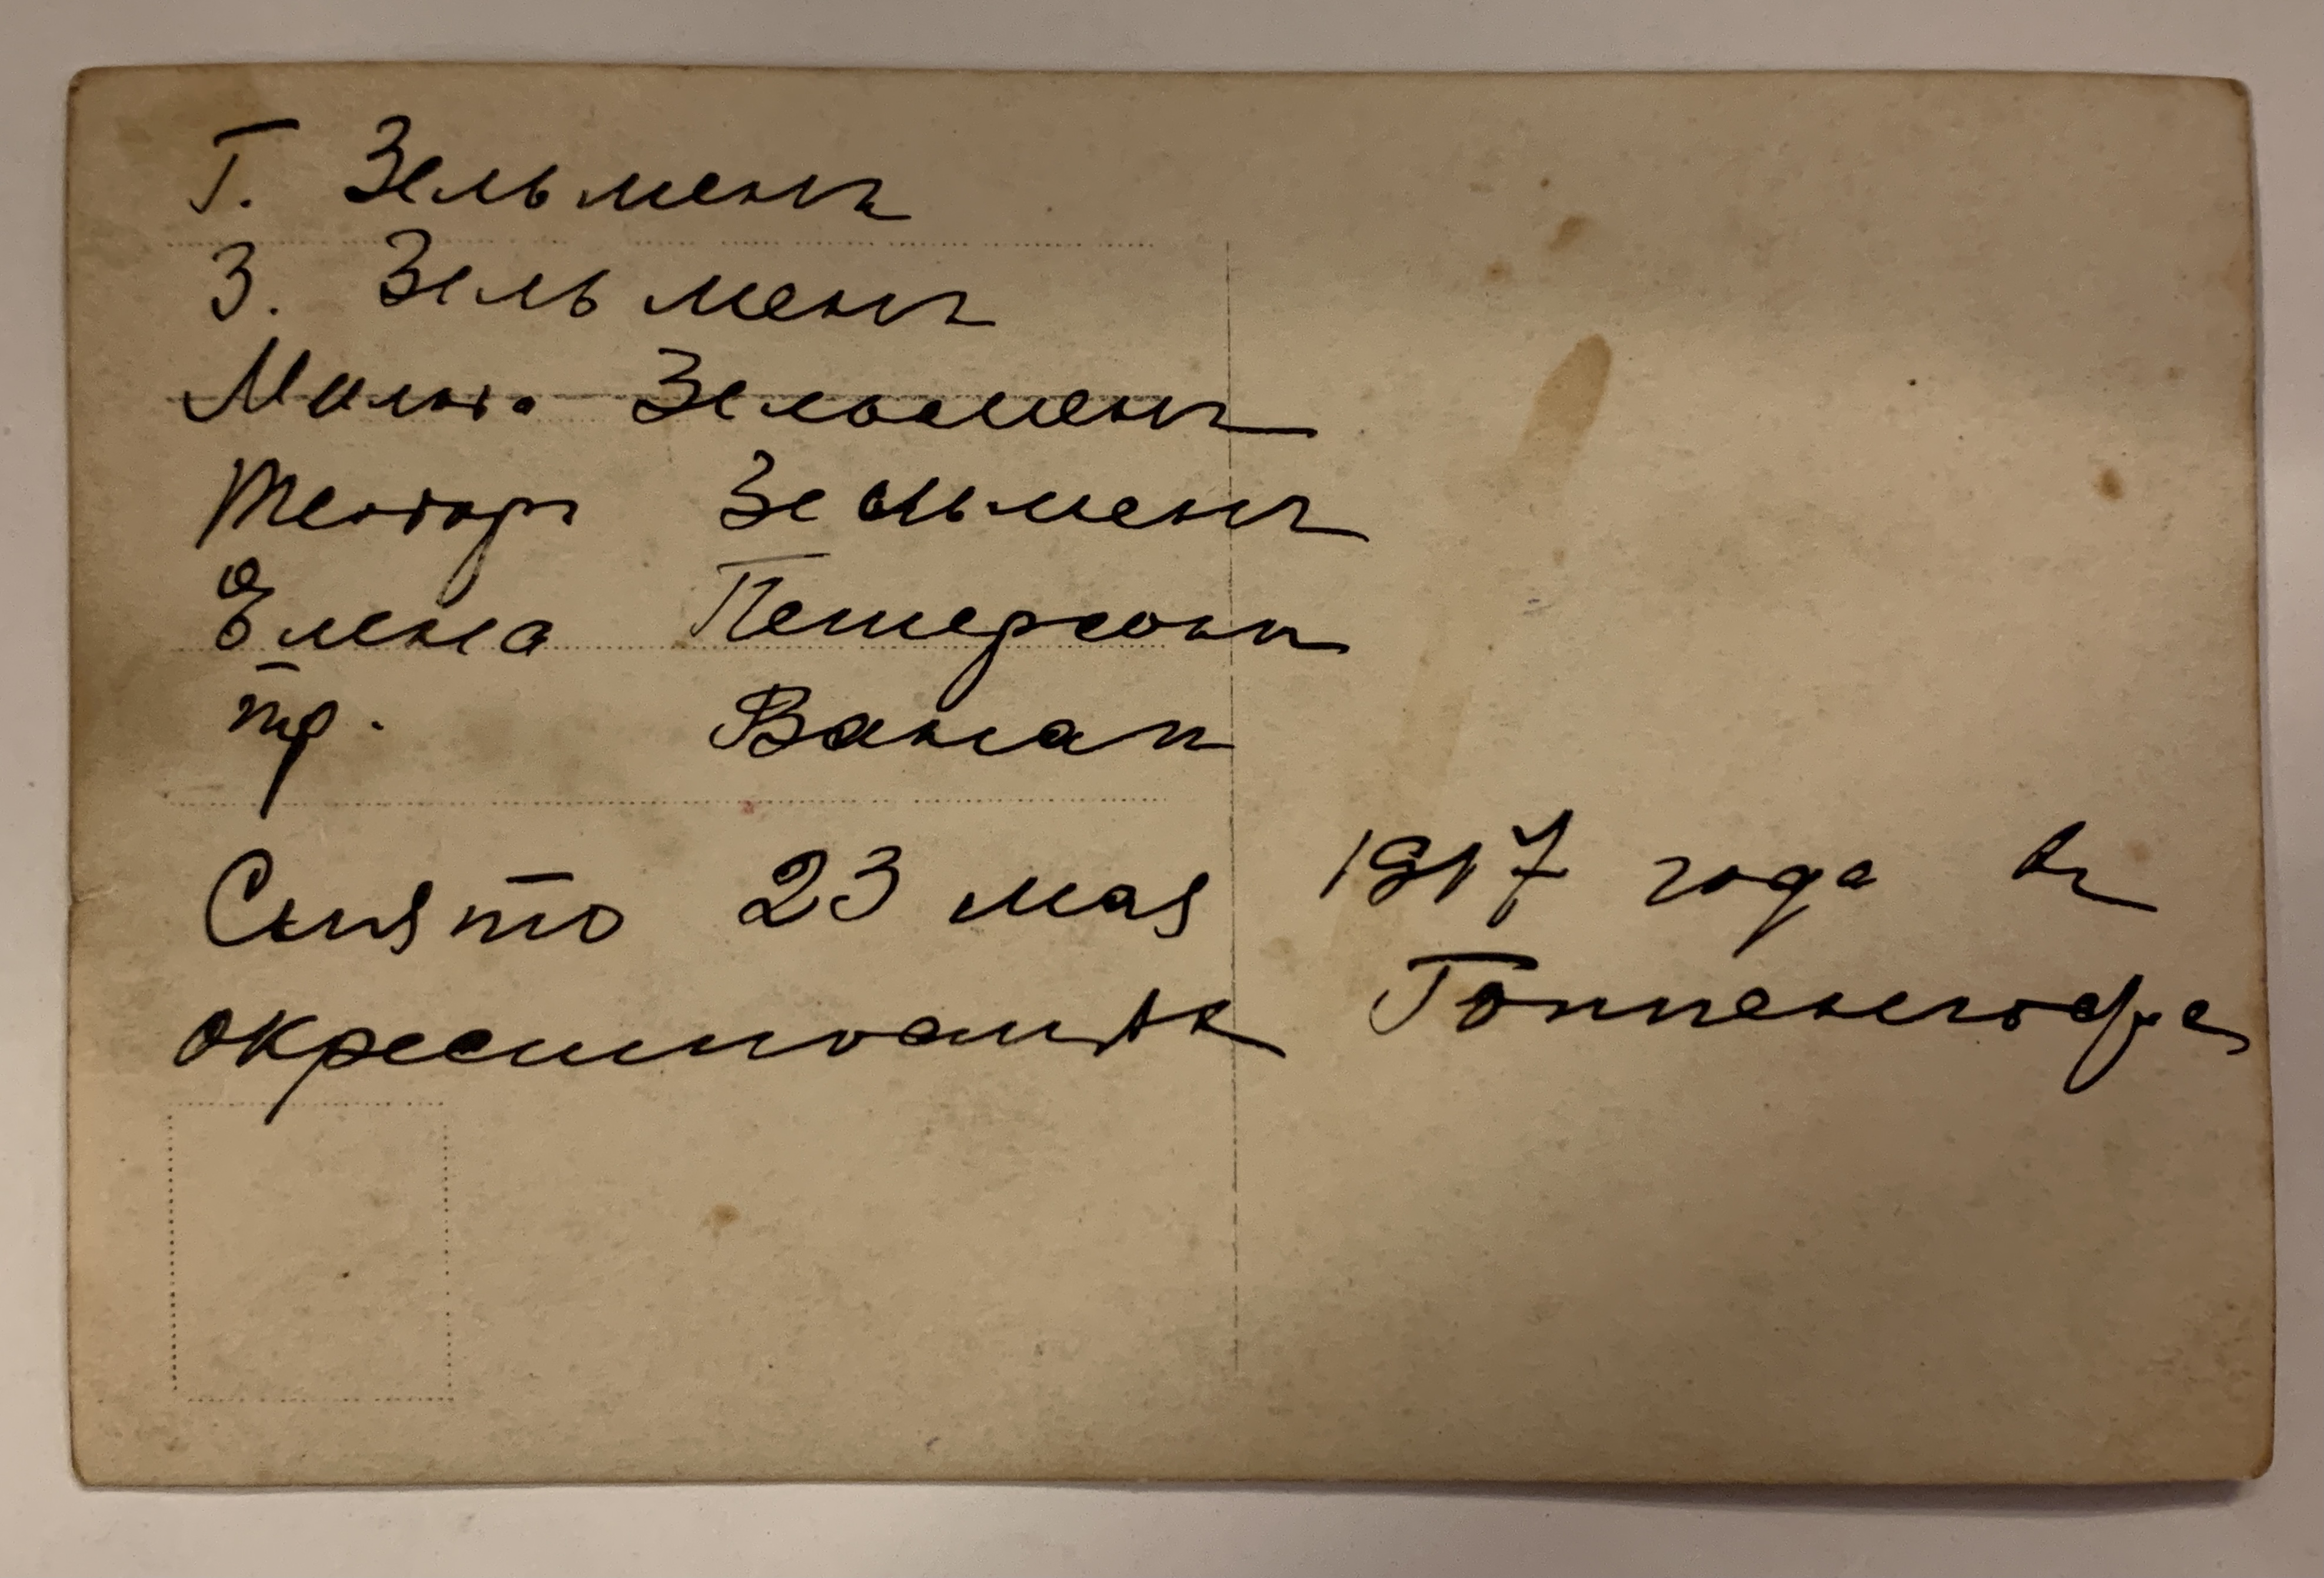 Г. Зельменъ
З. Зельменъ
Мильда Зельменъ
Теодоръ Зельменъ
Елена Петерсонъ
пр. Ванагъ
Снято 23 мая 1917 года въ
окрестностяхъ Гоппенгофа